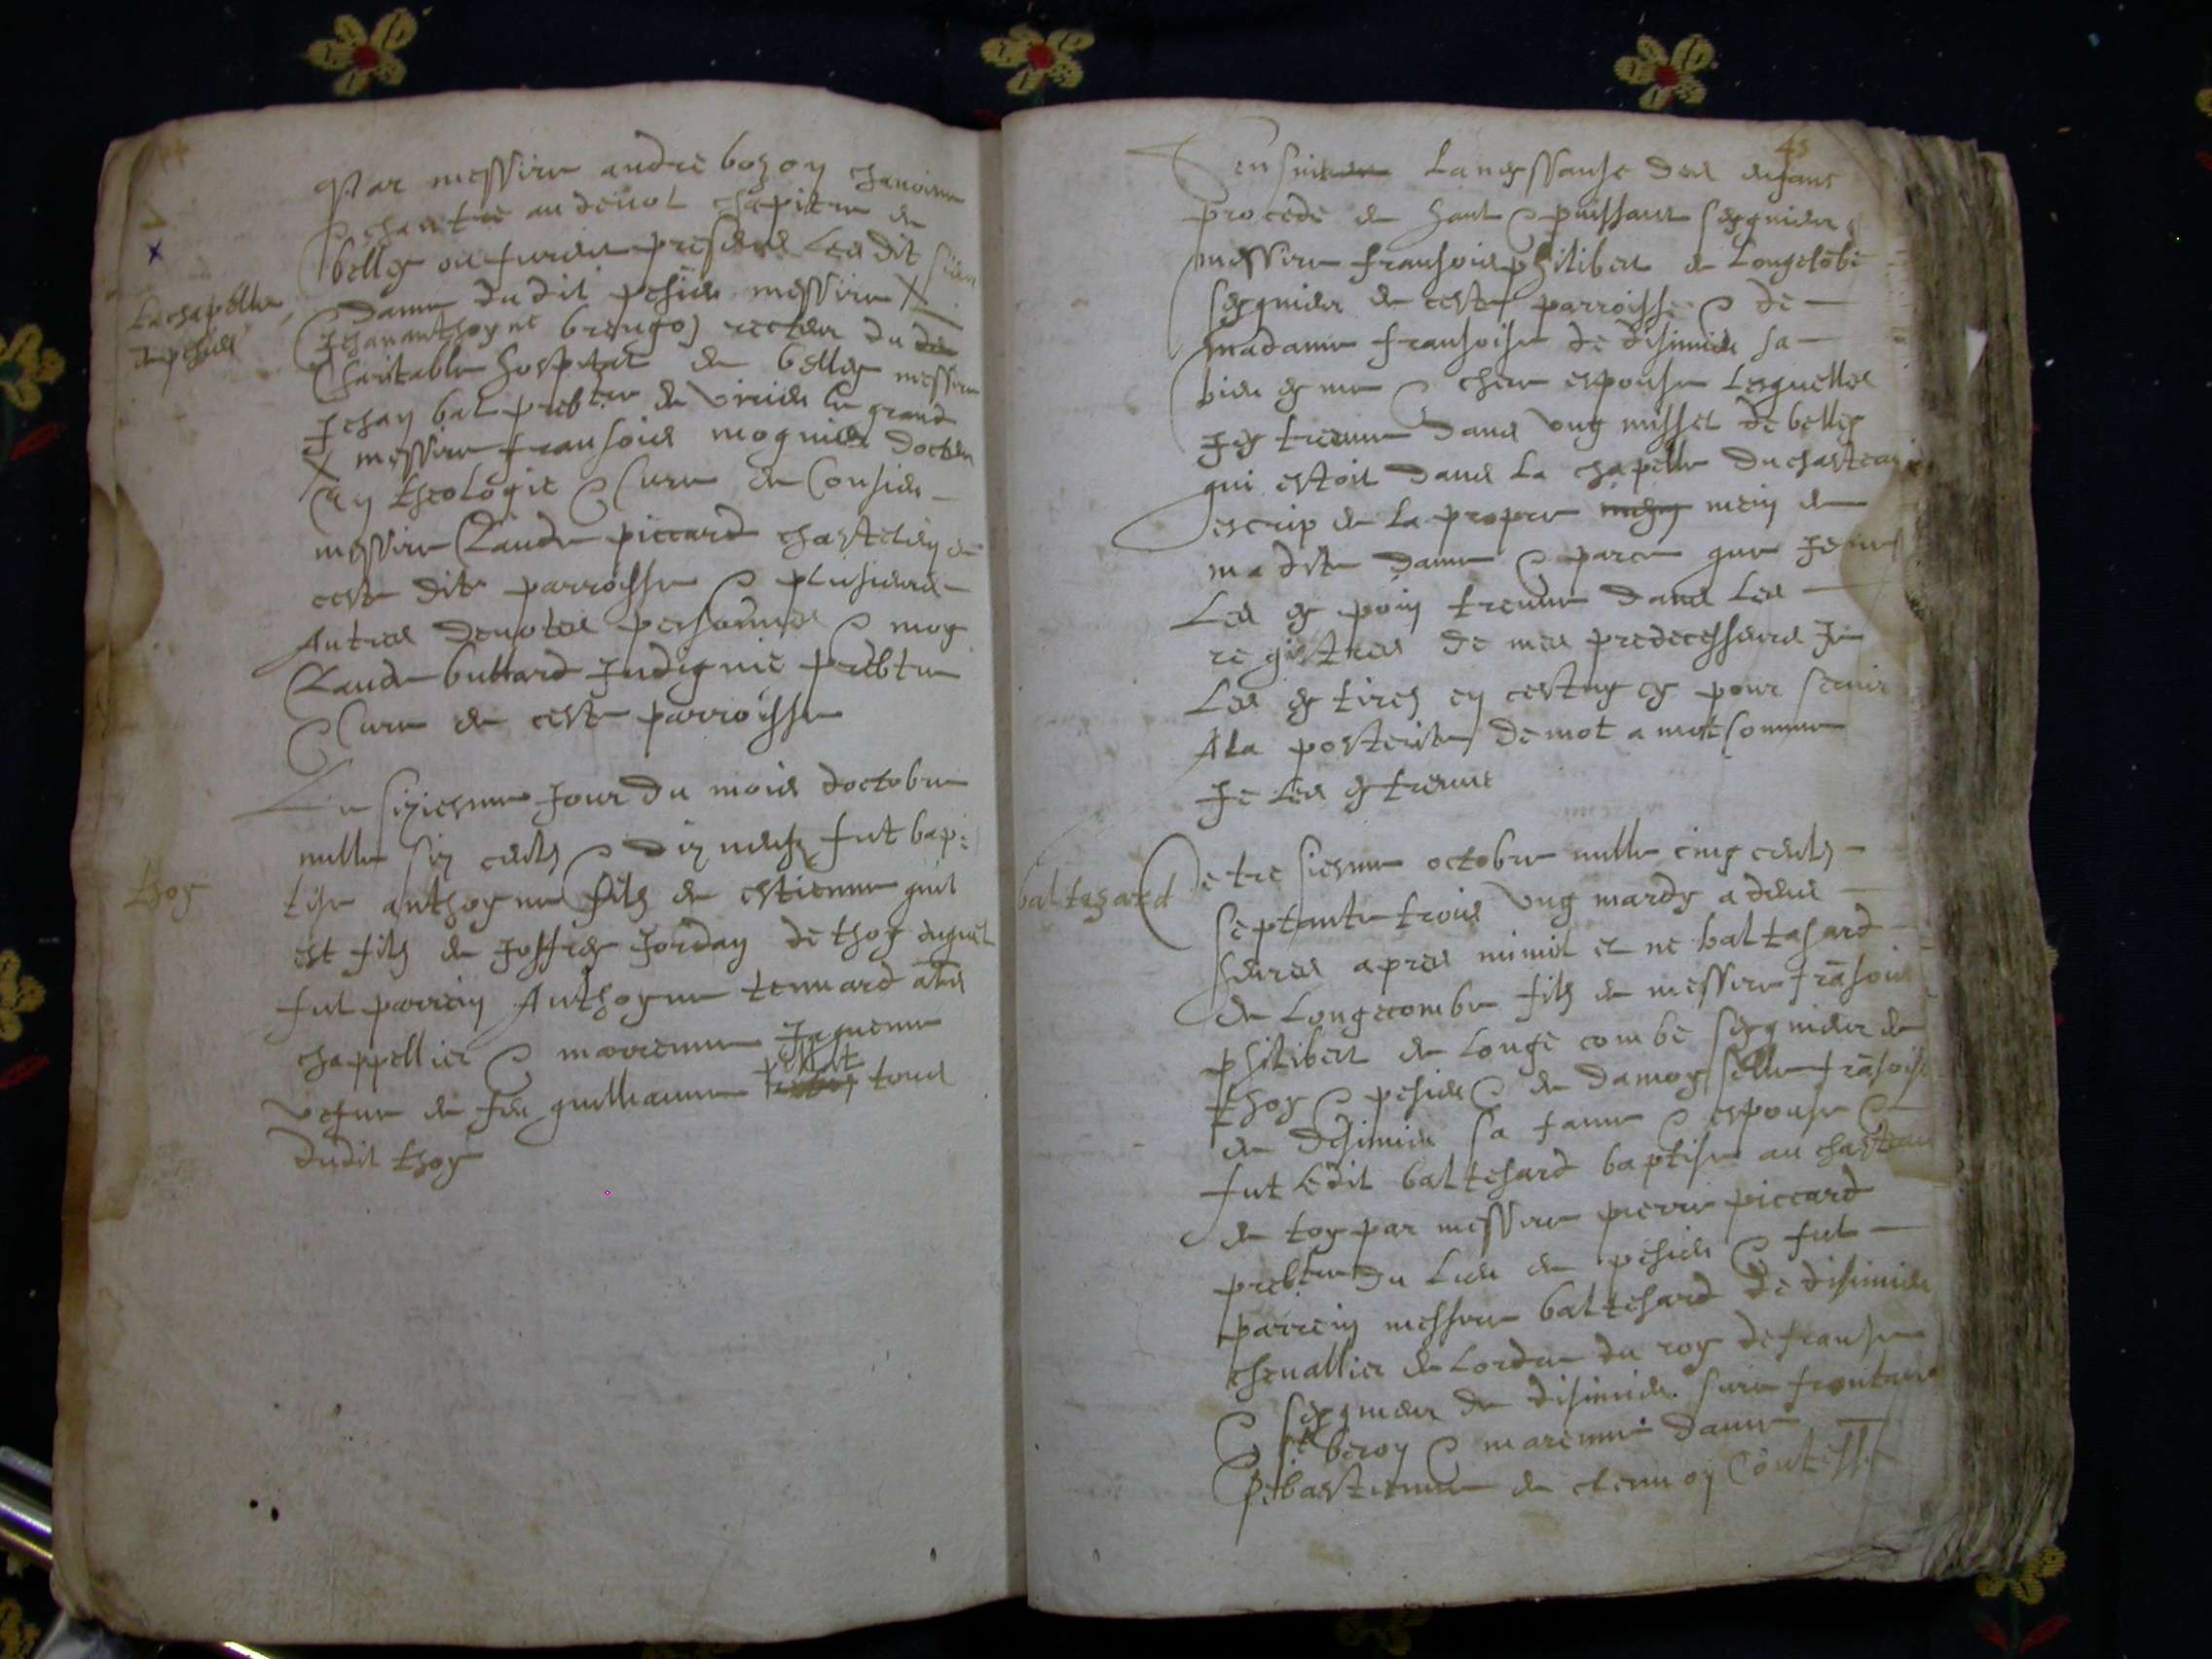 Par messire andre bozon chanoine
& chantre au devot chapitre de
belley ou furent presens les dit sieur
& dame du dit pesieu messire X
La chapelle
de pesieu
Jehan anthoyne recteur du
Charitable hospital de belley messire
Jehan bal prebtre de virieu le grand
X messire fransois mognier docteur
en theologie & cure de Consieu
messire Claude piccard chastelein de
ceste dite parroisse & plusieurs
Autres devotes personnes & moy
Claude buttard Indigne prebtre
& cure de ceste parroisse
Le sixiesme Jour du mois doctobre
mille six cents & dix neufz fut bap:
thoy
tise anthoyne filz de estienne quil
est filz de Joffrey Jordan de thoy duquel
fut parrein Anthoyne tennard alias
chappellier & marrenne Jaqueme
vefve de feu guilleaume tous
dudit thoy
45
Sen suivent La neyssanse des enfans
procede de haut & puissant seygnieur
messire fransois philibert de Longecobe
seygnieur de ceste parroisse & de
madame fransoise de disimieu sa
bien eyme & chere espouse Lesquelles
Jey treuve dans ung missel de belley
qui estoit dans La chapelle du chasteau
escrip de La propre mein de
ma dite dame & parce que Je ne
Les ey poin treuve dans Les
registres de mes predecesseurs Je
Les ey tires en cestuy cy pour servir
A La posterite de mot a mot comme
Je Les ey treuve
baltezard
Ce tresiesme octobre mille cinq cents
septante trois ung mardy a deux
heures apres minuit et ne baltasard
de Longecombe filz de messire frāsois
philibert de Longe combe seygnieur de
thoy & pesieu & de damoyselle frāsoise
de disimieu sa fame & espouse &
fut Ledit baltesard baptise au chasteau
de toy par messire pierre piccard
prebtre du Lieu de pesieu & fut
parrein messire baltesard de disimieu
chevallier de Lordre du roy de franse
& seygnieur de disimieu.
& marenne dame
Sebastienne de clermon Cōntesse